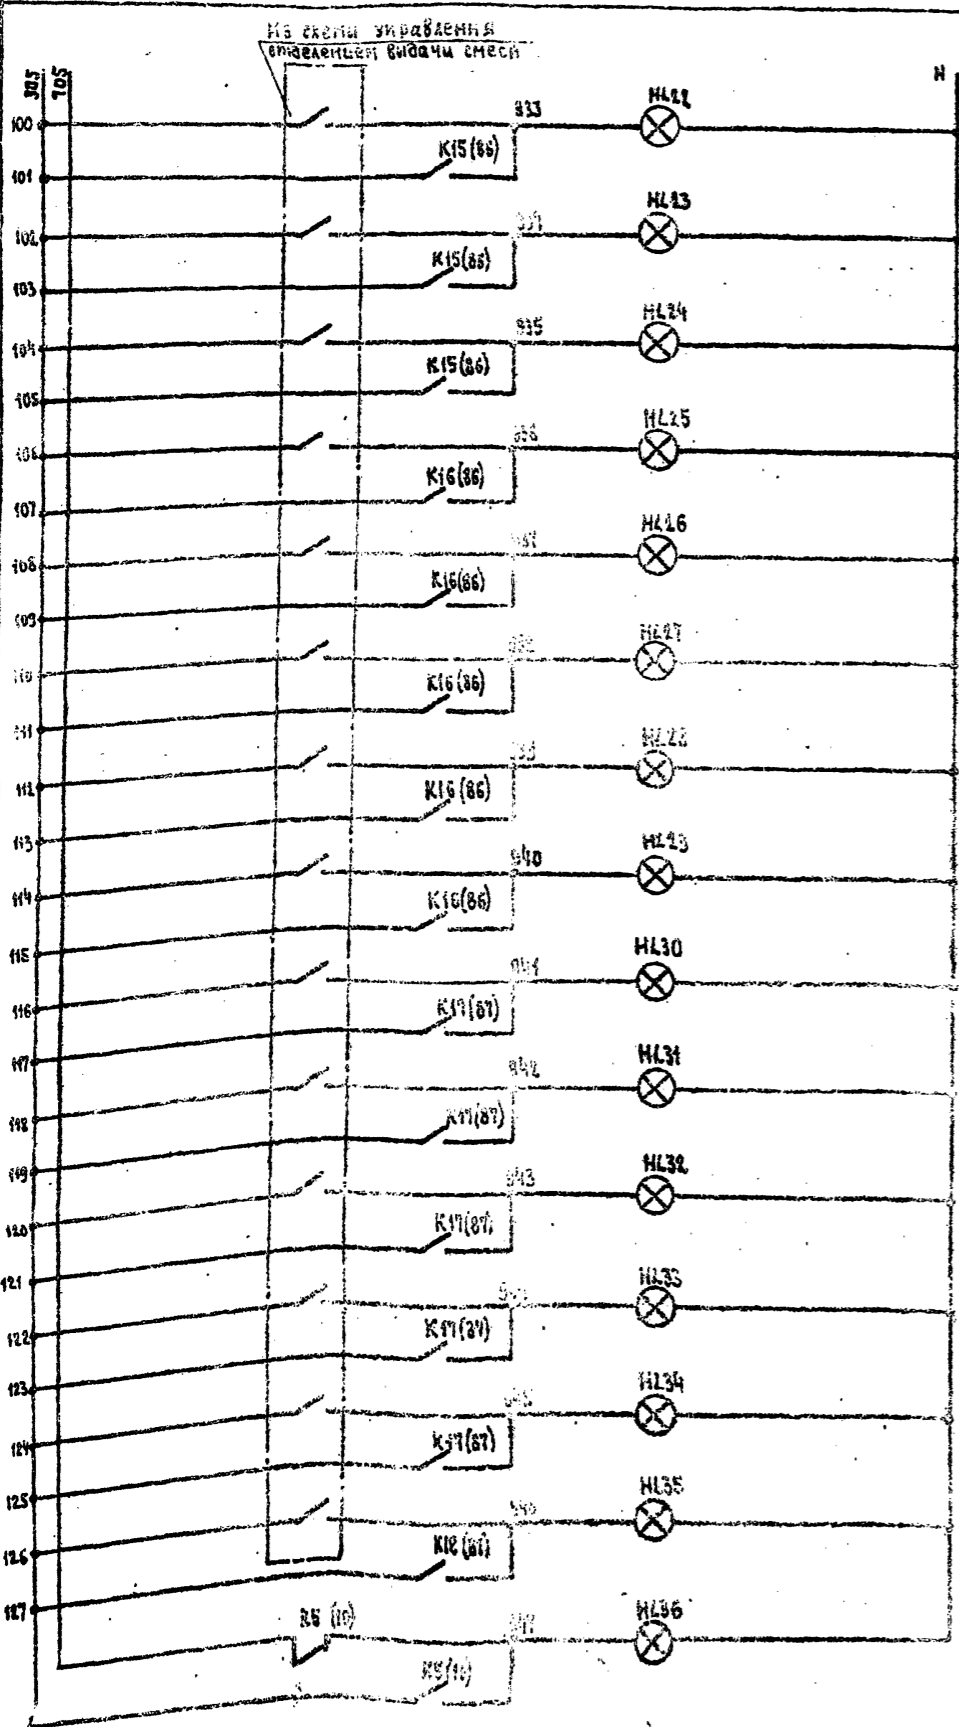 Из схемы управления
отделением выдачи смеси
305
705
N
100
933
HL22
K15(86)
101
102
HL23
K15(86)
103
104
935
HL24
K15(86)
105
106
936
HL25
K16(86)
107
108
937
HL26
K16(86)
109
110
HL27
K16(86)
111
112
HL28
K16(86)
113
114
940
HL29
K16(86)
115
116
941
HL30
K17(87)
117
118
942
HL31
K17(87)
119
120
943
HL32
K17(87)
121
122
HL33
K17(87)
123
124
HL34
K17(87)
125
126
HL35
K18(87)
127
K5 (10)
947
HL36
K5(10)